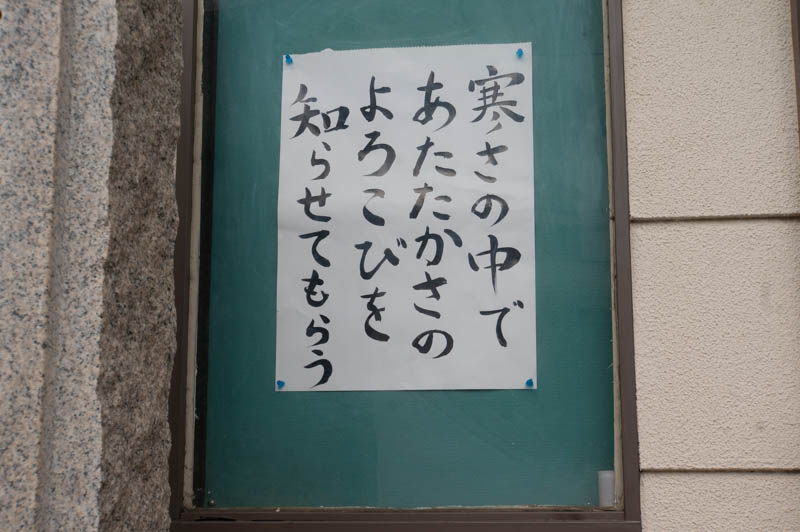 寒さの中で
あたたかさの
よろこびを
知らせてもらう